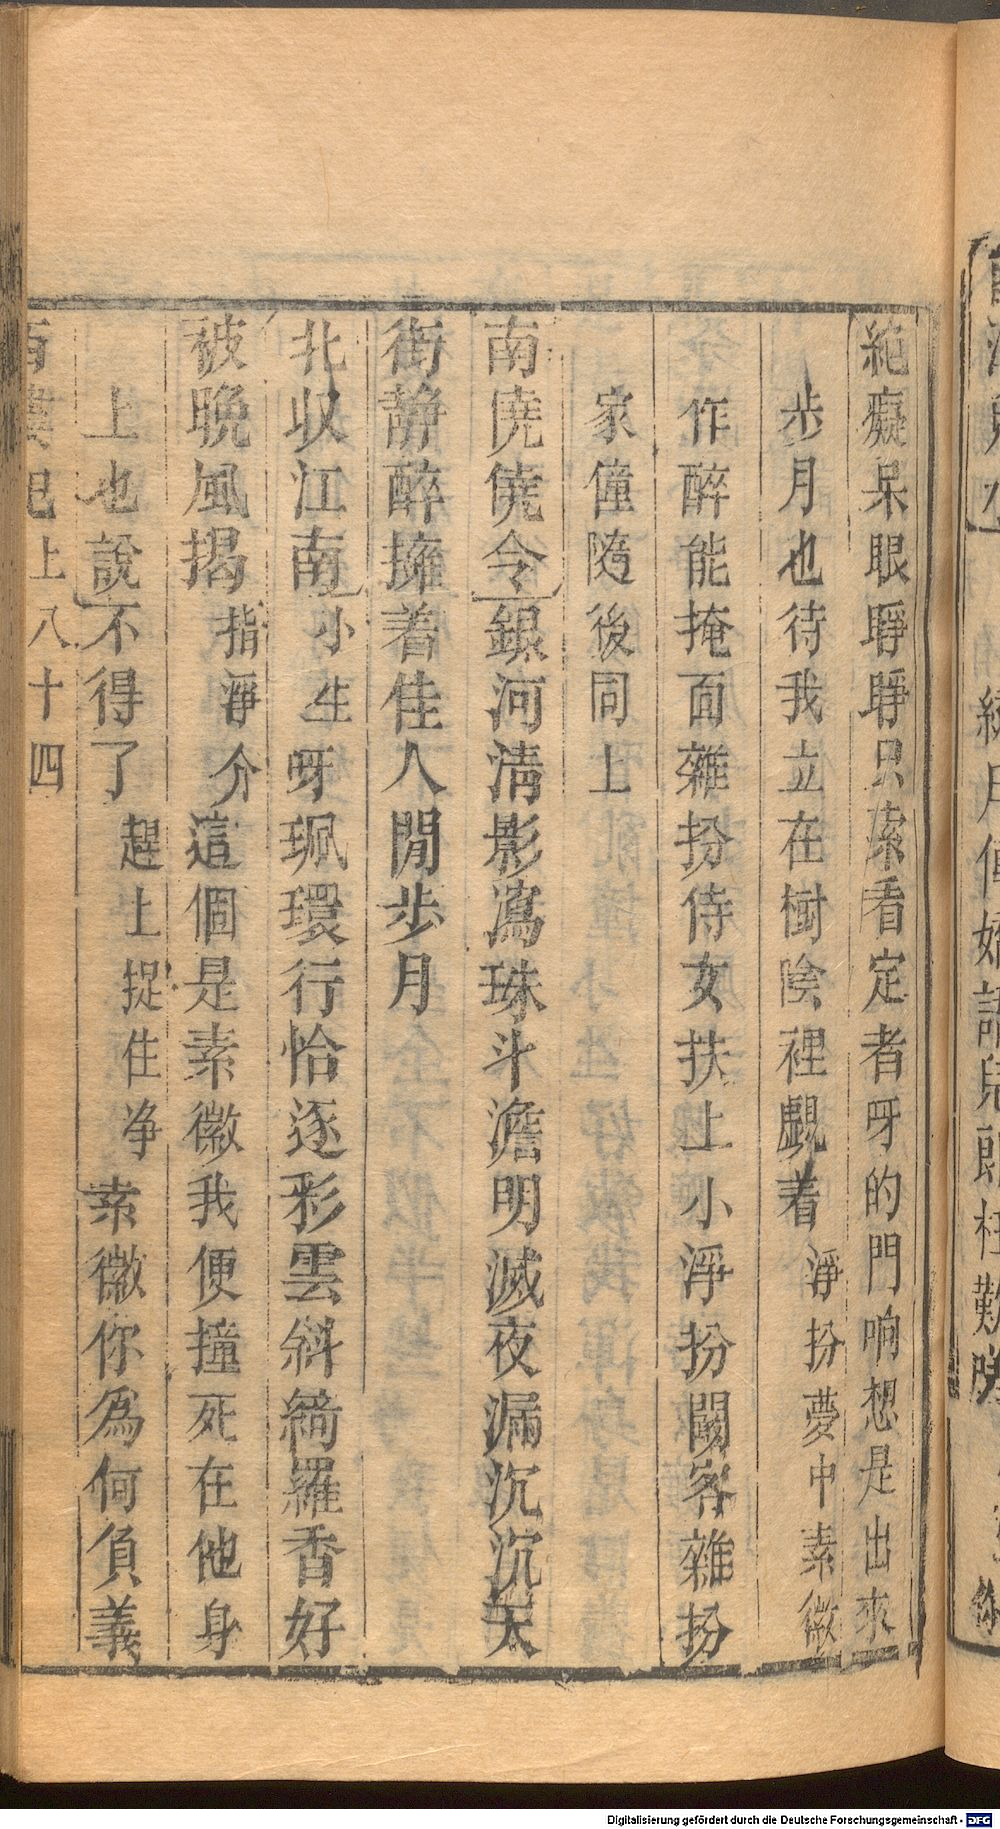 純癡呆眼睜睜只索看定者呀的門响想是出來
步月也待我立在樹陰裡覷着淨扮夢中素徽
作醉能掩面雜扮侍女扶上小淨扮閙客雜扮
家僮隨後同上
南僥僥令銀河清影瀉珠斗澹明滅夜漏沉沉天
街靜醉擁着佳人閒步月
北收江南小生呀珮環行恰逐彩雲斜綺羅香好
被晚風揭指淨介這個是素徽我便撞死在他身
上也說不得了趕上捉住净素徽你為何負義
西樓記上八十四
Digitalisierung gefördert durch die Deutsche Forschungsgemeinschaft - DFG